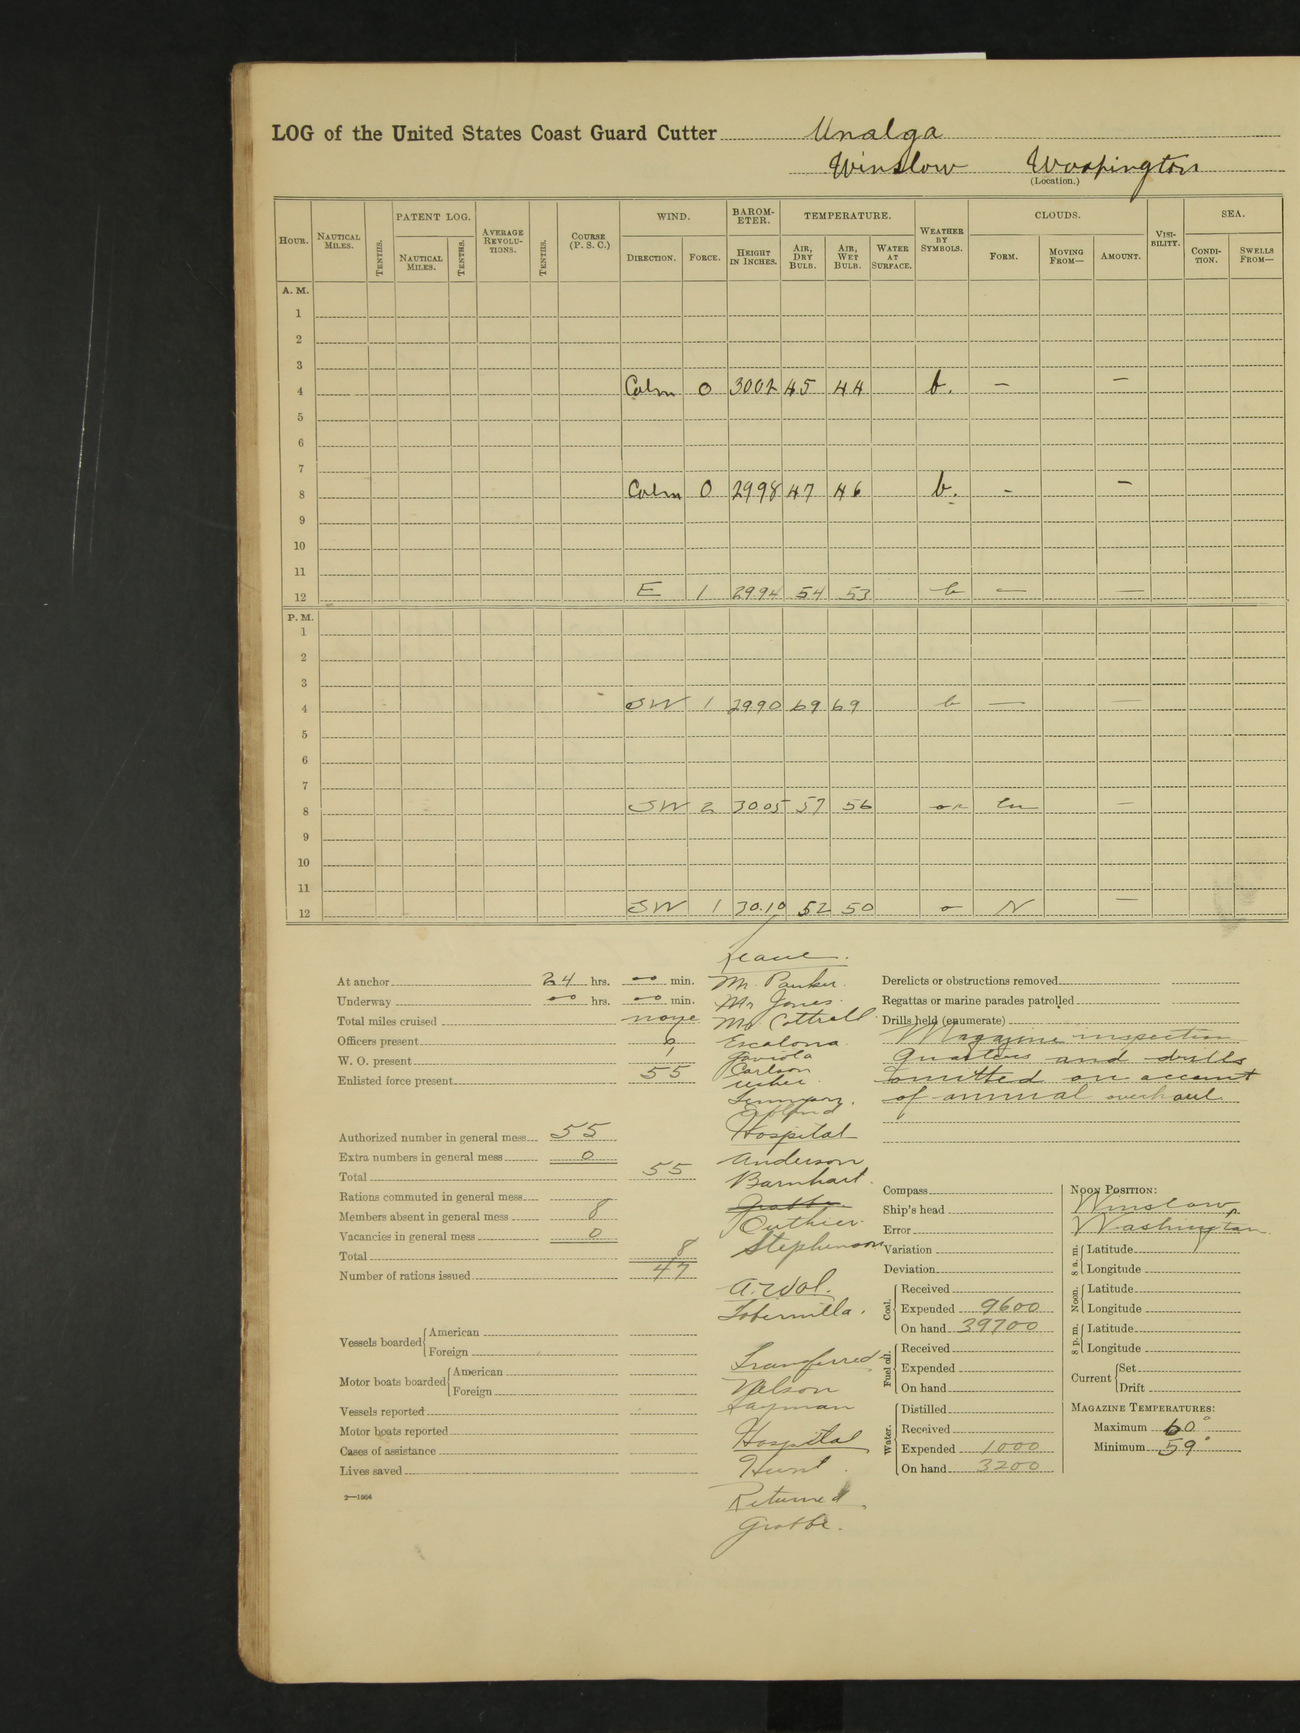 LOG of the United States Coast Guard Cutter Unalga
Winslow Washington
(Location.)
HOUR. NAUTICAL MILES. TENTHS. PATENT LOG. NAUTICAL MILES. TENTHS. AVERAGE REVOLUTIONS. TENTHS. COURSE (P. S. C.) WIND. DIRECTION. FORCE. BAROMETER. HEIGHT IN INCHES. TEMPERATURE. AIR, DRY BULB. AIR, WET BULB. WATER AT SURFACE. WEATHER BY SYMBOLS. CLOUDS. FORM. MOVING FROM— AMOUNT. VISIBILITY. SEA. CONDITION. SWELLS FROM—
A. M.
1
2
3
4 Calm 0 3002 45 44 b. — —
5
6
7
8 Calm 0 2998 47 46 b. - —
9
10
11
12 E 1 2994 54 53 b — —
P. M.
1
2
3
4 SW 1 2990 69 69 b — —
5
6
7
8 SW 2 30.05 57 56 or Cu —
9
10
11
12 SW 1 30.10 52 50 o N —
At anchor 24 hrs. — min.
Underway — hrs. — min.
Total miles cruised none
Officers present 6
W. O. present 1
Enlisted force present 55
Authorized number in general mess 55
Extra numbers in general mess 0
Total 55
Rations commuted in general mess
Members absent in general mess 8
Vacancies in general mess 0
Total 8
Number of rations issued 47
Vessels boarded American
Foreign
Motor boats boarded American
Foreign
Vessels reported
Motor boats reported
Cases of assistance
Lives saved
2—1664
Leave.
Mr. Parker.
Mr Jones.
Mr Cottrell.
Escalona
Gaviola
Carlson
Hospital
Anderson
Barnhart.
Grobbe
Outhier.
Stephenson
A.W.O.L.
Tobernilla.
Transferred
Nelson
Layman
Hospital
Hunt.
Returned.
Grobbe.
Derelicts or obstructions removed
Regattas or marine parades patrolled
Drills held (enumerate)
Magazine inspection
Quarters and drills
omitted on account
of annual overhaul
Compass
Ship's head
Error
Variation
Deviation
Coal. Received
Expended 9600
On hand 39700
Fuel oil. Received
Expended
On hand
Water. Distilled
Received
Expended 1000
On hand 3200
NOON POSITION:
Winslow,
Washington.
8 a. m. Latitude
Longitude
Noon. Latitude
Longitude
8 p. m. Latitude
Longitude
Current Set
Drift
MAGAZINE TEMPERATURES:
Maximum 60°
Minimum 59°